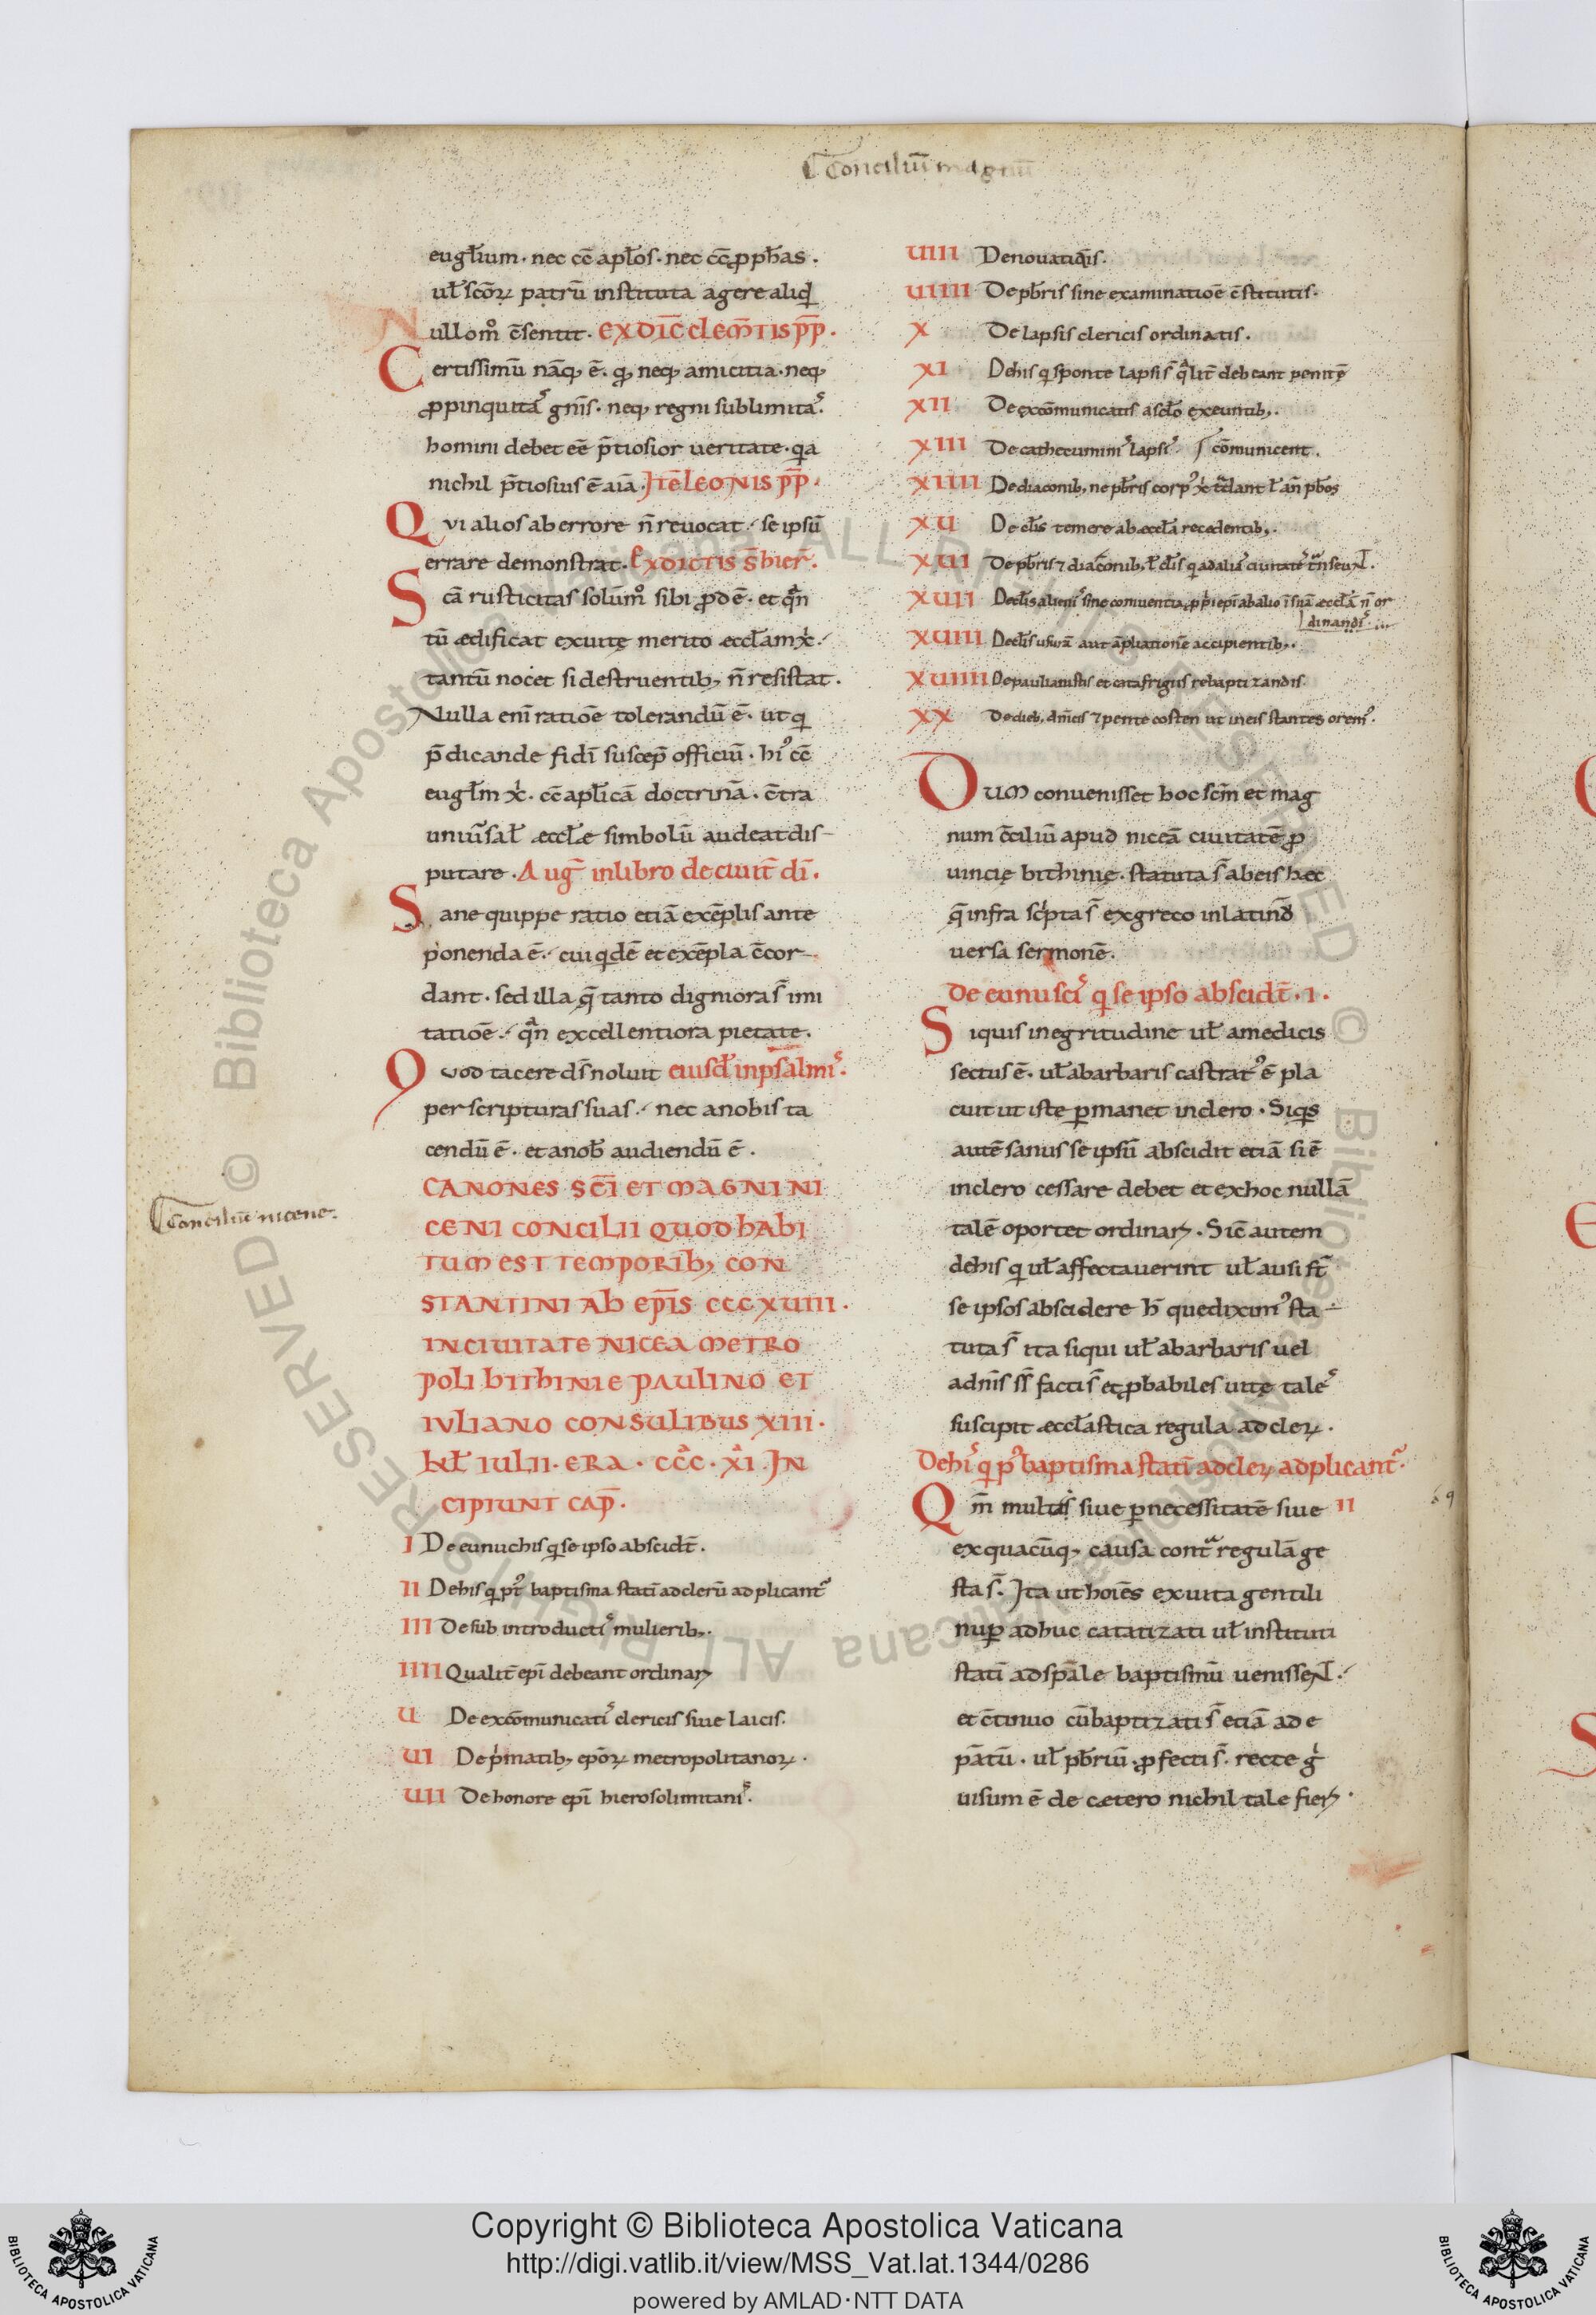 Conciliū magnū
eugl̄ium · nec cc̄ apl̄os · nec cc̄ ꝓph̄as ·
ul̄ scōꝝ patrū instituta agere aliq̄d
Nullom̊ c̄sentit · EX DIC̄ CLEM̄TIS PP̄ ·
Certissimū nāq; ē · qđ neq; amicitia · neq;
ꝓpinquitaˢ gn̄is · neq; regni sublimitaˢ ·
homini debet eē p̄tiosior ueritate · qa
nichil p̄tiosius ē aīa · Jtē LEONIS PP̄ ·
Qvi alios ab errore n̄ reuocat · se ipsū
errare demonstrat · Ex DICTIS S̄ hier̄ ·
Scā rusticitas solūm̊ sibi ꝓdē · et qͣn
tū ædificat ex uitę merito æccl̄am xp̄i ·
tantū nocet si destruentib; n̄ resistat ·
Nulla enī ratiōe tolerandū ē · ut q
p̄dicande fidī suscep̄ officiū · hiꝰ cc̄
eugl̄m xp̄i · cc̄ apl̄icā doctrinā · c̄tra
uniūsal̄ æccl̄æ simbolū audeat dis-
putare · Auḡ in libro de ciuit̄ dī ·
Sane quippe ratio etiā exēplis ante
ponenda ē · cui qdē et exēpla c̄cor-
dant · sed illa q̄ tanto digniora s̄ imi
tatiōe · qͣn excellentiora pietate ·
Qvod tacere ds̄ noluit eiusd̄ in psalmiˢ ·
per scripturas suas · nec a nobis ta
cendū ē · et a nob̄ audiendū ē ·
CANONES SC̄I ET MAGNI NI
CENI CONCILII QUOD HABI
TUM EST TEMPORIB; CON
STANTINI AB EPĪS CCCXUIII ·
IN CIUITATE NICEA METRO
POLI BITHINIE PAULINO ET
IVLIANO CONSULIBUS XIII ·
KL̄ IULII · ERA · CCC · XI · JN
CIPIUNT CAP̄ ·
Conciliū nicene ·
I De eunuchis q se ipso abscidt̄ ·
II De his q pꝰ baptisma statī ad clerū adplicant᷑
III De sub introductiˢ mulierib; ·
IIII Qualit̄ epī debeant ordinari
U De excōmunicatiˢ clericis siue laicis ·
UI De pͥmatib; epōꝝ metropolitanoꝝ ·
UII De honore epī hierosolimitaniˢ ·
UIII De nouatianis ·
UIIII De pb̄ris sine examinatiōe c̄stitutis ·
X De lapsis clericis ordinatis ·
XI De his q sponte lapsi s̄ qͣlit̄ debeant penitē
XII De excōmunicatis a scl̄o exeuntib; ·
XIII De cathecuminiˢ lapsiˢ · comunicent ·
XIIII De diaconib; ne pb̄ris corpꝰ xp̄i tͣdant l̄ an̄ pb̄os
XU De cl̄is temere ab æccl̄a recedentib; ·
XUI De pb̄ris ⁊ diacōnib; l̄ cl̄is q ad aliā ciuitatē tͣnseuNT ·
XUII De cl̄is alieniˢ sine coniuentia ꝓpͥi epī ab alio ī suā æccl̄ā n̄ or
dinandiˢ ·
XUIII De cl̄is usurā aut āpliationē accipientib; ·
XUIIII De paulianistis et catafrigiis rebaptizandis
XX De dieb; dn̄icis ⁊ pentecosten ut in eis stantes oremꝰ ·
Dum convenisset hoc scm̄ et mag
num c̄ciliū apud niceā ciuitatē ꝓ
uincię bithinię · statuta s̄ ab eis hec
q̄ infra scͥpta s̄ ex greco in latino
uersa sermonē ·
De eunusciˢ q se ipso abscidt̄ · I ·
Siquis in egritudine ul̄ a medicis
sectus ē · ul̄ a barbaris castratꝰ ē pla
cuit ut iste ꝑmanet in clero · Siqs
autē sanus se ipsū abscidit etiā si ē
in clero cessare debet et ex hoc nullā
talē oportet ordinari · Sic̄ autem
de his q ul̄ affectauerint ul̄ ausi st̄
se ipsos abscidere h̄ que diximꝰ sta-
tuta s̄ ita siqui ul̄ a barbaris uel
a dn̄is ss̄ facti s̄ et ꝓbabiles uitę taleˢ
suscipit æccl̄astica regula ad cleꝝ ·
De hiˢ q pꝰ baptisma statī ad cleꝝ adplicant᷑ ·
Qm̄ multis siue ꝑ necessitatē siue II
ex quacūq; causa contͣ regulā ge
sta s̄ · Jta ut hoīes ex uita gentili
nuꝑ adhuc catatizati ul̄ instituti
statī ad spāle baptismū uenisseNT ·
et c̄tinuo cū baptizati s̄ etiā ad e
pātū · ul̄ pb̄riū · ꝓfecti s̄ · recte gͥ
uisum ē de cætero nichil tale fieri ·
Copyright © Biblioteca Apostolica Vaticana
http://digi.vatlib.it/view/MSS_Vat.lat.1344/0286
powered by AMLAD·NTT DATA
BIBLIOTECA APOSTOLICA VATICANA
BIBLIOTECA APOSTOLICA VATICANA